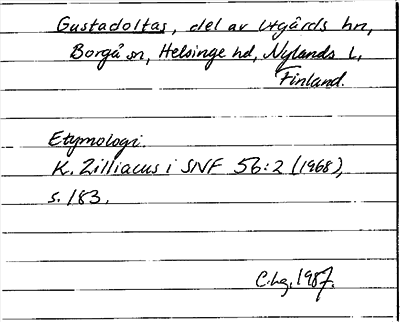 Gustadoltas, del av Utgårds hn,
Borgå sn, Helsinge hd, Nylands l,
Finland.
Etymologi.
K. Zilliacus i SNF 56:2 (1968),
s. 183.
C.hg. 1987.